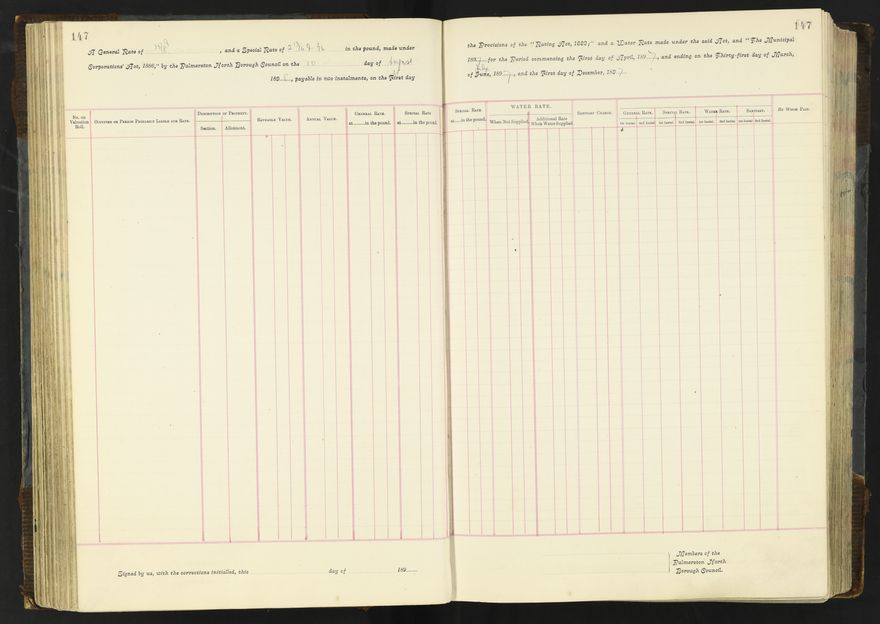 147
A General Rate of , and a Special Rate of in the pound, made under
Corporations' Act, 1886," by the Palmerston North Borough Council on the 10 day of August
189 , payable in two instalments, on the First day
No. on Valuation Roll.
Occupier or Person Primarily Liable for Rate.
Description of Property.
Section.
Allotment.
Rateable Value.
Annual Value.
General Rate
at in the pound.
Special Rate
at in the pound.
Signed by us, with the corrections initialled, this day of 189
147
the Provisions of the "Rating Act, 1882;" and a Water Rate made under the said Act, and "The Municipal
189 for the Period commencing the First day of April, 1897, and ending on the Thirty-first day of March,
of June, 1897, and the First day of December, 1897
Special Rate
at in the pound.
WATER RATE.
When Not Supplied.
Additional Rate When Water Supplied
Sanitary Charge.
General Rate.
1st Instal. 2nd Instal.
Special Rate.
1st Instal. 2nd Instal.
Water Rate.
1st Instal. 2nd Instal.
Sanitary.
1st Instal. 2nd Instal.
By Whom Paid.
Members of the
Palmerston North
Borough Council.